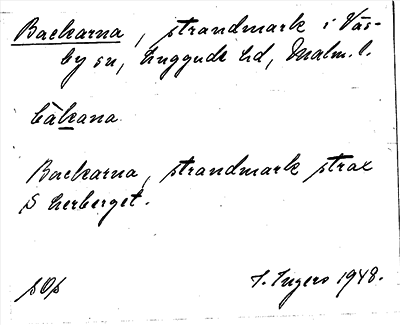 Backarna, strandmark i Väs-
by sn, Luggude hd, Malm. l.
bàkana
Backarna, strandmark strax
S herberget.
sOs
I. Ingers 1948.